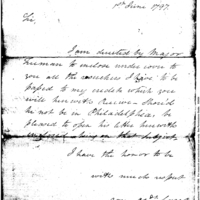 1st June 1797.
Sir,
I am directed by Major
Freeman to enclose under cover to
you all the vouchers I have to be
passed to my credit which you
will herewith receive — should
he not be in Philadelphia be
pleased to open his letter herewith
enclosed — on that subject.
I have the honor to be
with much respect